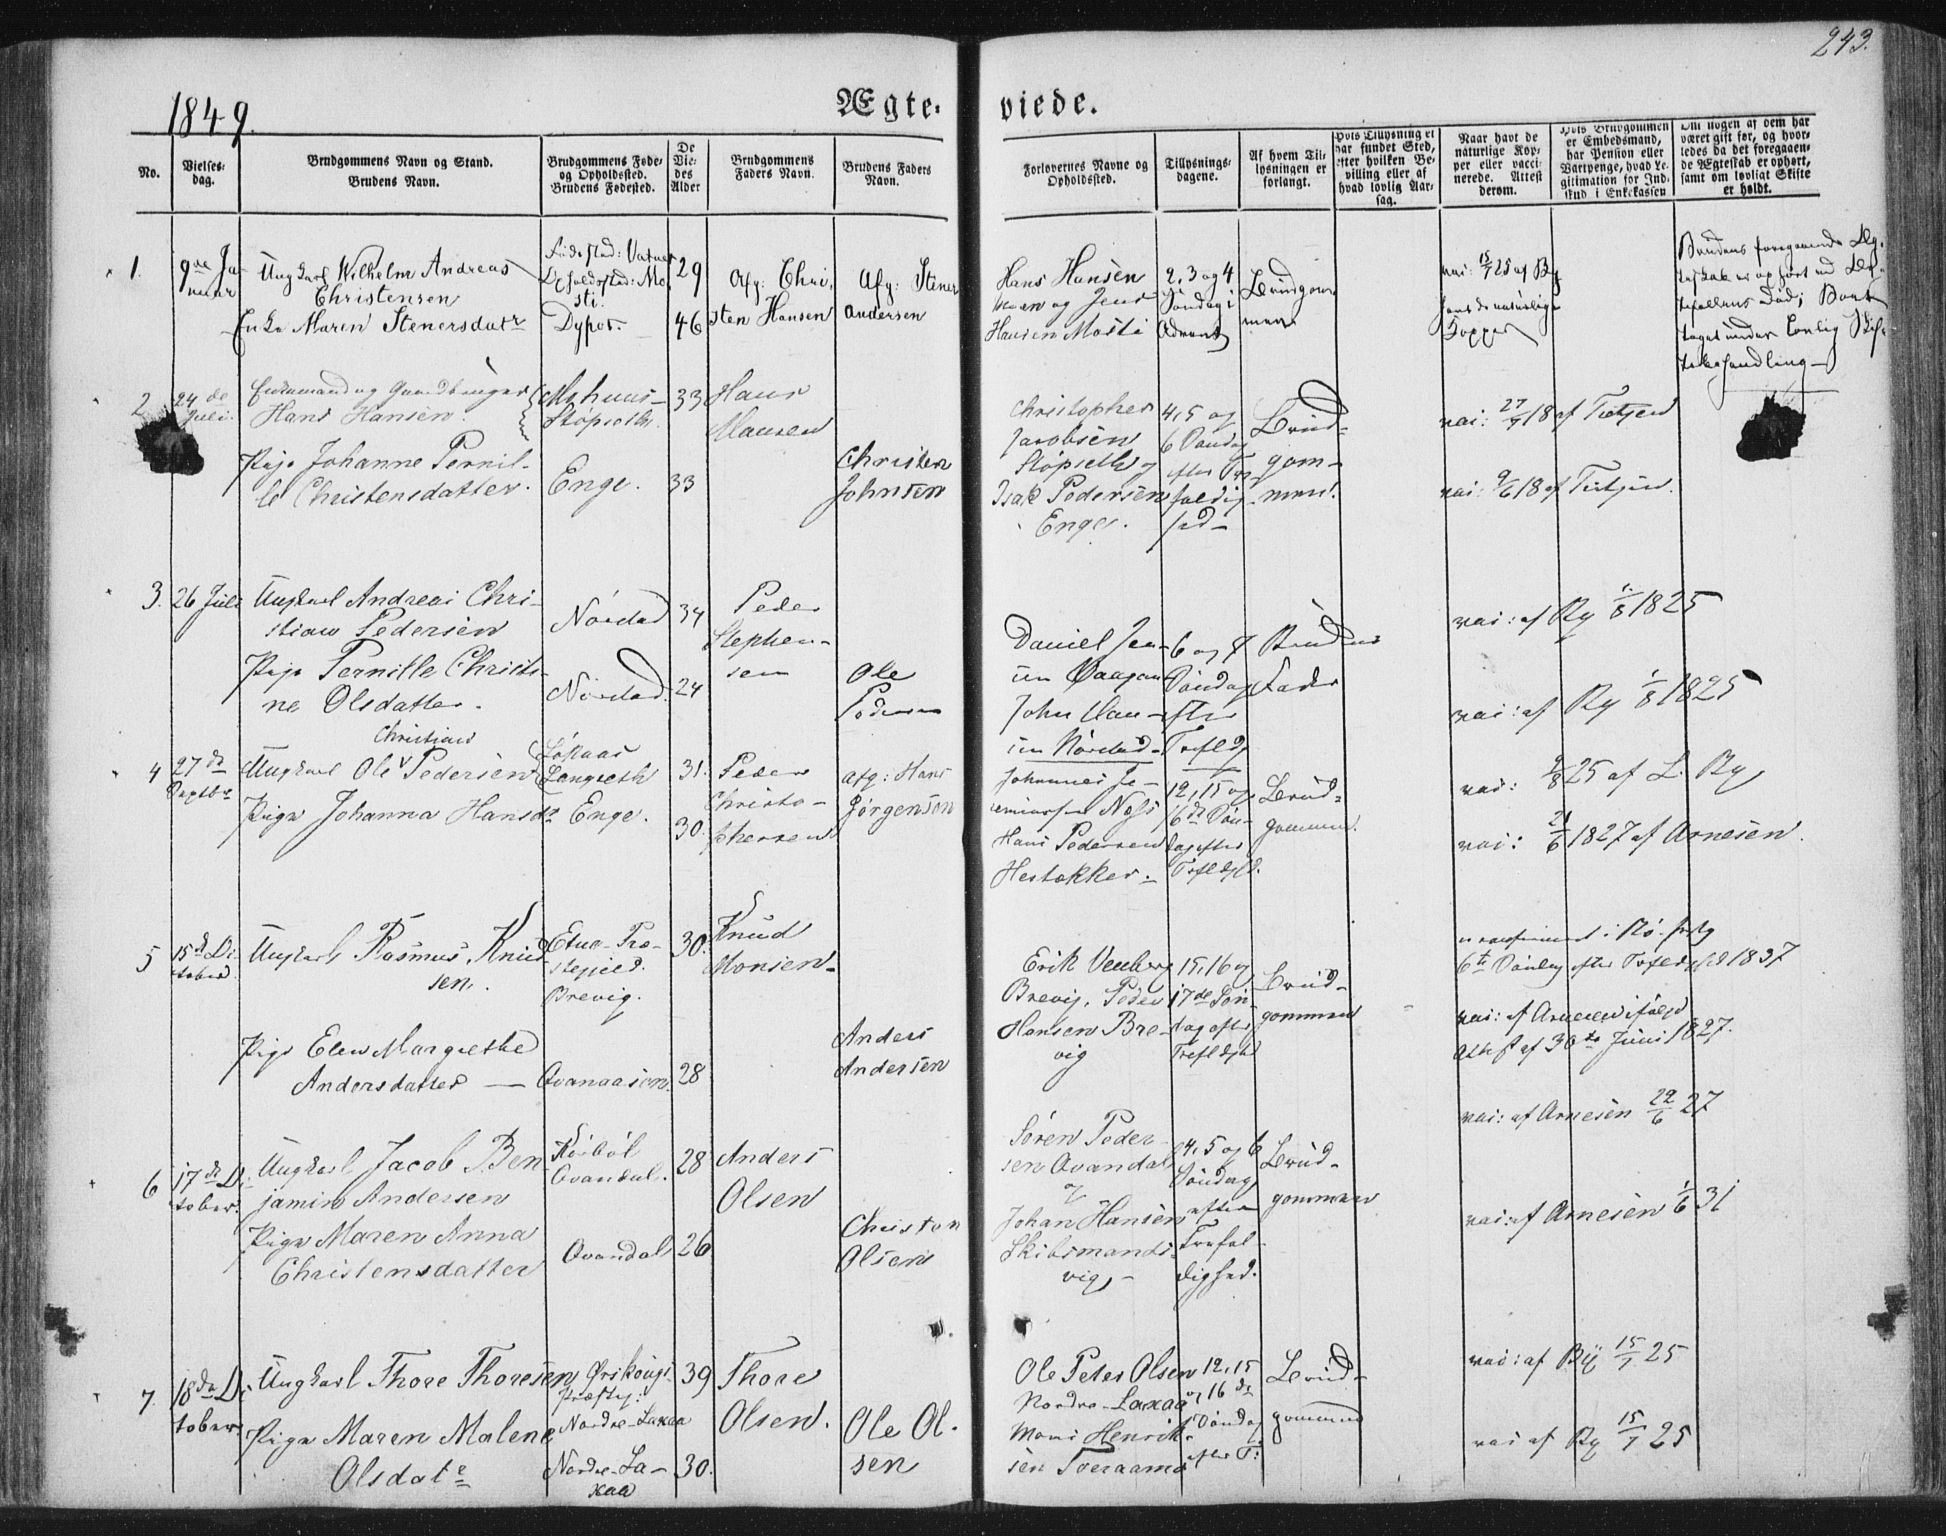 243.
1849.
Ægte-
viede.
No.
Vielses-
dag.
Brudgommens Navn og Stand.
Brudens Navn.
Brudgommens Føde-
og Opholdssted.
Brudens Fødested.
De
Vie-
des
Alder
Brudgommens
Faders Navn.
Brudens Faders
Navn.
Forlovernes Navne og
Opholdssted.
Tillysnings-
dagene.
Af hvem Til-
lysningen er
forlangt.
Hvis Tillysning ei
har fundet Sted,
efter hvilken Be-
villing eller af
hvad lovlig Aar-
sag.
Naar havt de
naturlige Kop-
per eller vacci-
nerede. Attest
derom.
Hvis Brudgommen
er Embedsmand,
har Pension eller
Vartpenge, hvad Le-
gitimation for Ind-
skud i Enkekassen
Om nogen af dem har
været gift før, og hvor-
ledes da det foregaaen-
de Ægteskab er ophørt,
samt om lovligt Skifte
er holdt.
1.
9de Ja-
nuar
Ungkarl Wilhelm Andreas
Christensen
Enke Maren Stenersdatr
Dypos.
29
46
Afg: Chri-
sten Hansen
Afg: Stener
Andersen
Hans Hansen
og Jens
Hansen Mosti
2, 3 og 4
Søndag i
Advent
Brudgom-
men
vac: 15/7 25 af By
havt de naturlige
Kopper
Brudens foregaaende Æg-
teskab er ophørt ved Æg-
tefællens Død;
Skif-
tebehandling
2
24de
Juli.
Enkemand og Gaardbruger
Hans Hansen
Pige Johanne Pernil-
le Christensdatter.
Støpseth.
Enge.
33
33
Hans
Christen
Johnsen
Christopher
Jacobsen
Støpseth og
Isak Pedersen
Enge.
4, 5 og
6 Søndag
efter Tre-
foldig-
hed
Brud-
gom-
men.
vac: 27/7 18 af Tietjen
vac: 9/6 18 af Tietjen.
3.
26 Juli
Ungkarl Andreas Chri-
stian Pedersen
Pige Pernille Christi-
ne Olsdatter.
Nørstad
Nørstad.
34
24
Peder
Stephen-
sen
Ole
Pedersen
Daniel Jen-
sen
John Han-
sen Nørstad
6 og 7
Søndag
efter
Trefldg
Brudens
Fader
vac: af By 1/8 1825
vac: af By 1/8 1825
4
27de
Septbr
Christian
Ungkarl Ole Pedersen
Pige Johanna Hansdr
Langseth
Enge.
31.
30.
Peder
Christo-
phersen
Afg: Hans
Jørgensen
Johannes Je-
remiassen Næss
Hans Pedersen
Hestøkker.
12, 15 og
16de Søn-
dag efter
Trefldghd.
Brud-
gommen.
vac: 2/8 25 af L. By
vac: 21/6 1827 af Arnesen.
5
15de Oc-
tober
Ungkarl Rasmus Knud-
sen.
Pige Elen Margrethe
Andersdatter
Etne Præ-
stegield.
Brevig.
Qvanaasen
30.
28
Knud
Monsen
Anders
Andersen
Erik Venberg
Brevig, Peder
Hansen Bre-
vig
15, 16 og
17de Søn-
dag efter
Trefldghd
Brud-
gommen
6te Søndag efter Trefldghed 1837
vac: af Arnesen ifølge
Attest af 30te Juni 1827.
vac: af Arnesen 22/6 27
6
17de Oc-
tober.
Ungkarl Jacob Ben-
jamin Andersen
Pige Maren Anna
Christensdatter
Qvandal.
Qvandal
28
26
Anders
Olsen
Christen
Olsen
Søren Peder-
sen Qvandal
og
Johan Hansen
Skibsmands-
vig,
4, 5 og 6
Søndag
efter
Trefol-
dighed.
Brud-
gommen
vac: af Arnesen 1/6 31
7.
18de Oc-
tober
Ungkarl Thore Thoresen
Pige Maren Malene
Olsdatr
Ørskougs
Præstg:
Nordre-Laxaa
Nordre-La-
xaa
39
30.
Thore
Olsen.
Ole Ol-
sen
Ole Peter Olsen
Nordre-Laxaa
Mons Henrik-
sen Tveraamo
12, 15
og 16de
Søndag
efter T:
Brud-
gommen
vac: af By 15/7 25
vac af By 15/7 25